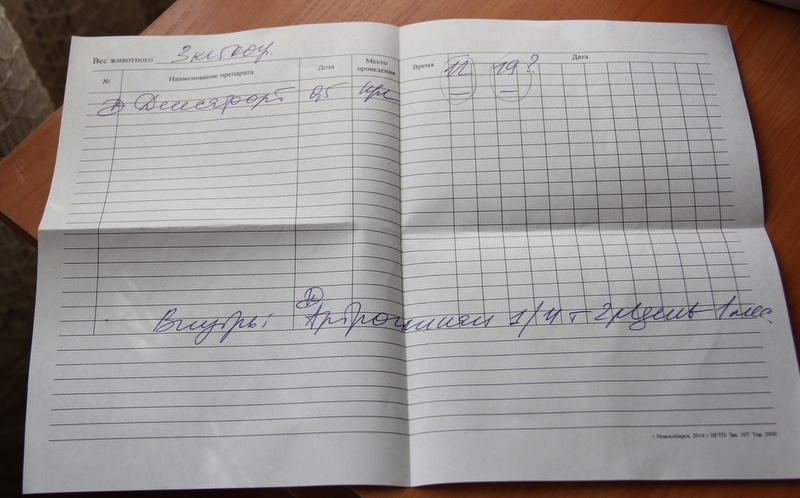 Вес животного 3 кг
№ Наименование препарата Доза Место проведения Время Дата
11 19?
1) Дексафорт 0,5
Внутрь: 1) Артрогликан 1/4 т 2 р/день 1 мес.
г. Новосибирск 2014 г. НГТП. Зак. 307. Тир. 2000